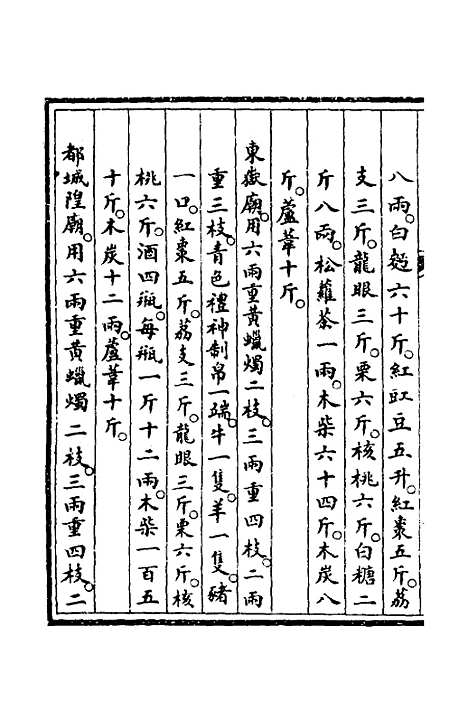 八兩。白麪六十斤。紅豇豆五升。紅棗五斤。荔
支三斤。龍眼三斤。栗六斤。核桃六斤。白糖二
斤八兩。松蘿茶一兩。木柴六十四斤。木炭八
斤。蘆葦十斤。
東嶽廟。用六兩重黃蠟燭二枝。三兩重四枝。二兩
重三枝。青色禮神制帛一端。牛一隻。羊一隻。豬
一口。紅棗五斤。荔支三斤。龍眼三斤。栗六斤。核
桃六斤。酒四瓶。每瓶一斤十二兩。木柴一百五
十斤。木炭十二兩。蘆葦十斤。
都城隍廟。用六兩重黃蠟燭二枝。三兩重四枝。二